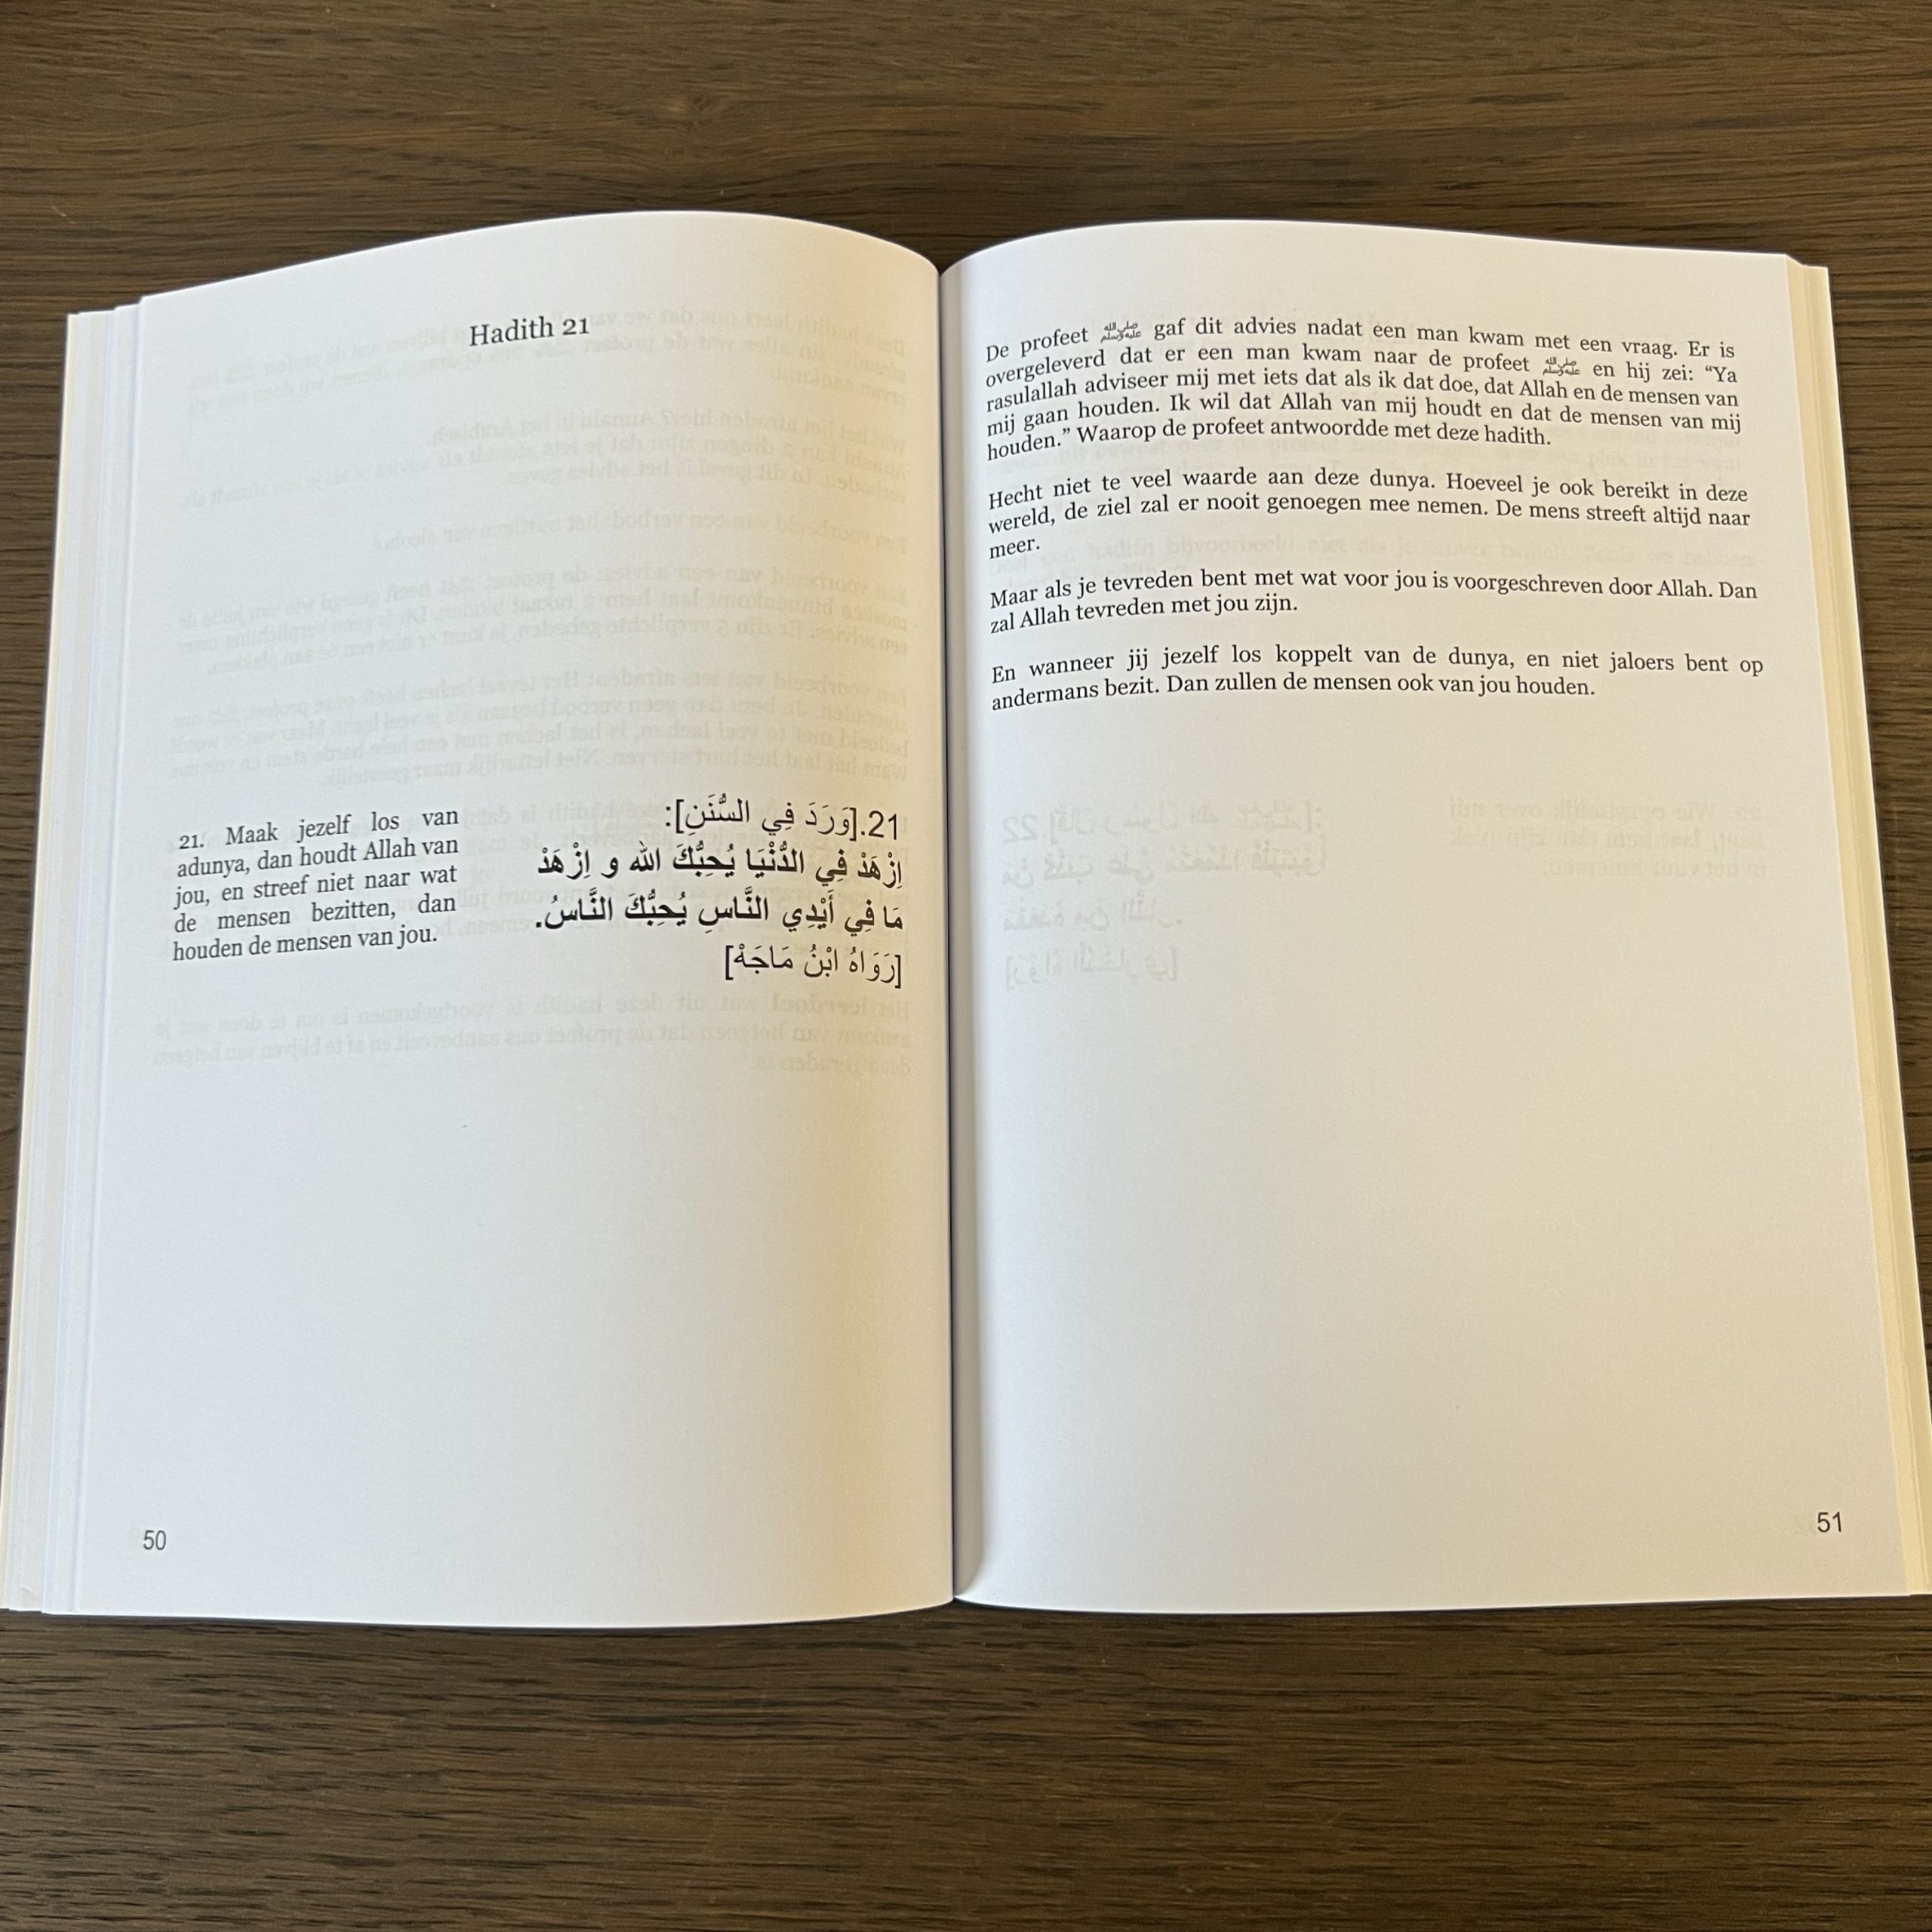 Hadith 21
21. Maak jezelf los van
adunya, dan houdt Allah van
jou, en streef niet naar wat
de mensen bezitten, dan
houden de mensen van jou.
21.[وَرَدَ فِي السُّنَنِ]:
اِزْهَدْ فِي الدُّنْيَا يُحِبُّكَ الله و اِزْهَدْ
مَا فِي أَيْدِي النَّاسِ يُحِبُّكَ النَّاسُ.
[رَوَاهُ ابْنُ مَاجَهْ]
50
De profeet ﷺ gaf dit advies nadat een man kwam met een vraag. Er is
overgeleverd dat er een man kwam naar de profeet ﷺ en hij zei: “Ya
rasulallah adviseer mij met iets dat als ik dat doe, dat Allah en de mensen van
mij gaan houden. Ik wil dat Allah van mij houdt en dat de mensen van mij
houden.” Waarop de profeet antwoordde met deze hadith.
Hecht niet te veel waarde aan deze dunya. Hoeveel je ook bereikt in deze
wereld, de ziel zal er nooit genoegen mee nemen. De mens streeft altijd naar
meer.
Maar als je tevreden bent met wat voor jou is voorgeschreven door Allah. Dan
zal Allah tevreden met jou zijn.
En wanneer jij jezelf los koppelt van de dunya, en niet jaloers bent op
andermans bezit. Dan zullen de mensen ook van jou houden.
51